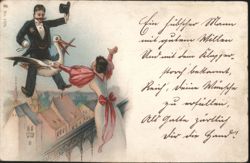 Ein hübscher Mann
mit gutem Willen
Und mit dem Klapper-
storch bekannt,
Reich, Deine Wünsche
zu erfüllen,
Als Gatte zärtlich
Dir die Hand!